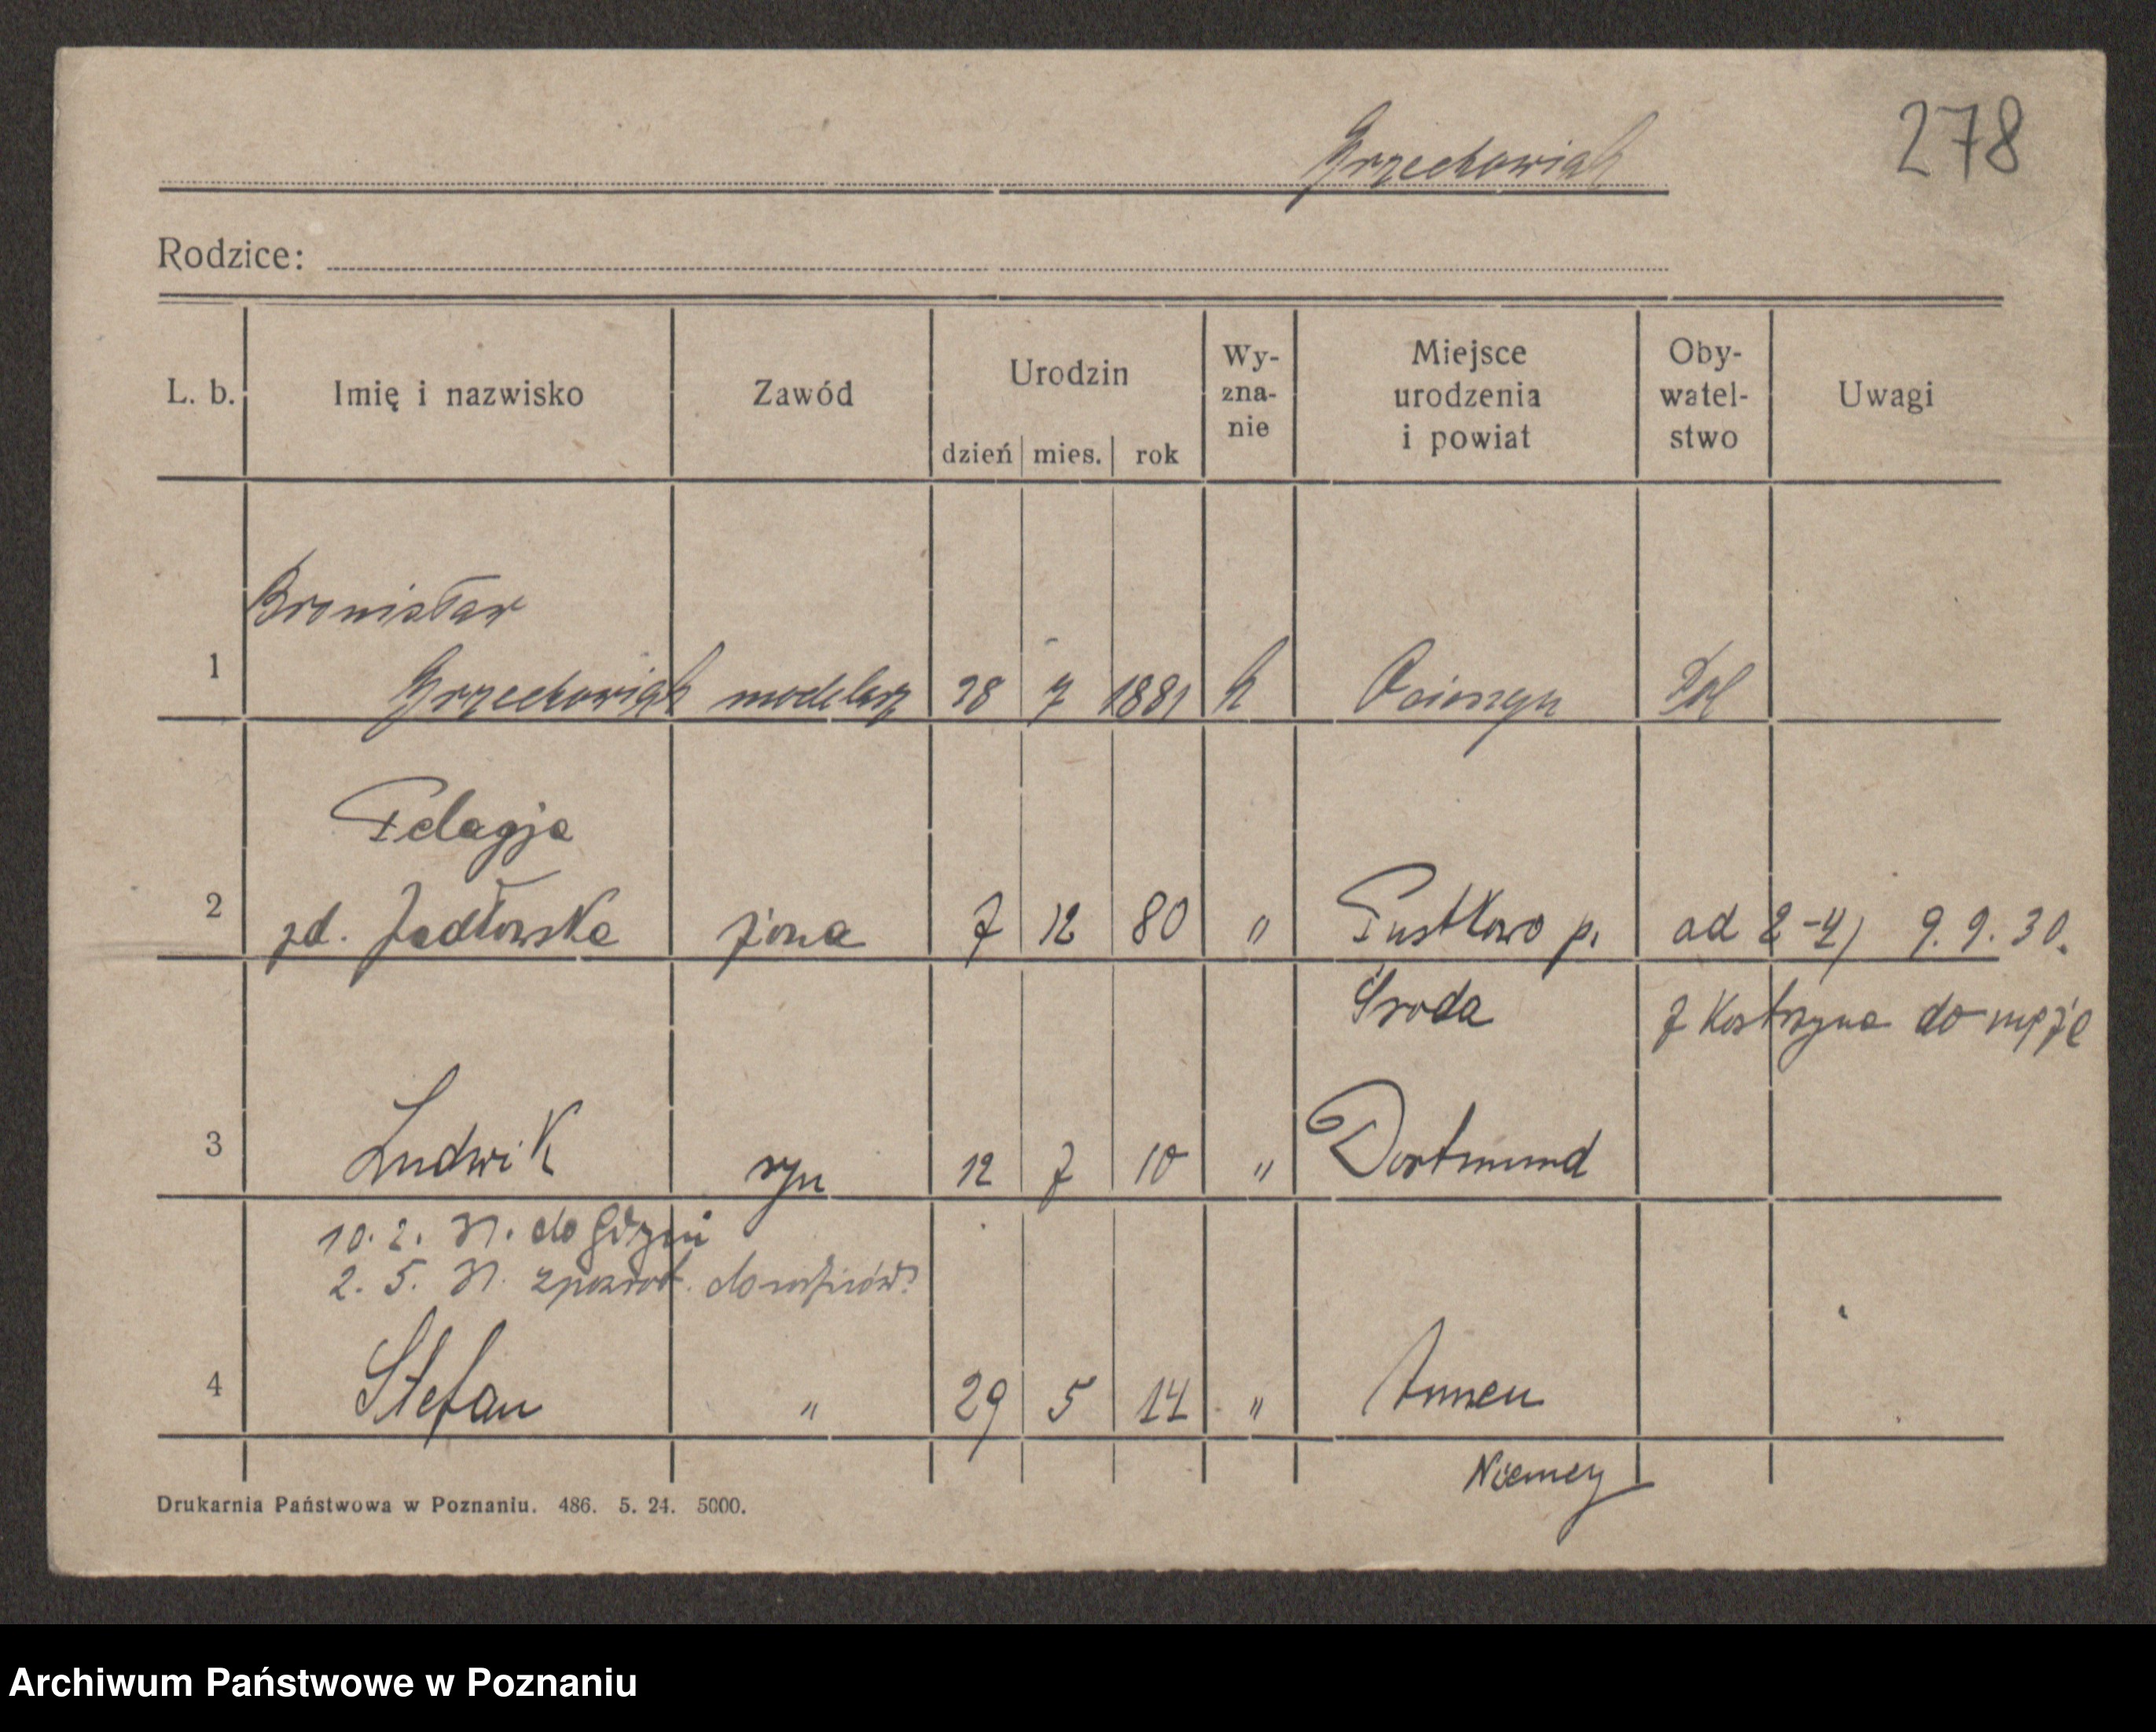 278
Grzechowiak
Rodzice:
L. b. Imię i nazwisko Zawód Urodzin dzień mies. rok Wy-zna-nie Miejsce urodzenia i powiat Oby-watel-stwo Uwagi
Bronisław
1 Grzechowiak modelarz 28 7 1881 k Pol
Pelagja
2 zd. Jadłowska żona 7 12 80 " Pustkowo p. ad 2-4) 9.9.30.
Środa z Kostrzyna do męża
3 Ludwik syn 12 7 10 " Dortmund
10. 2. 31. do Gdyni
2. 5. 31. zpowrot. do rodziców
4 Stefan " 29 5 14 " Annen
Niemcy
Drukarnia Państwowa w Poznaniu. 486. 5. 24. 5000.
Archiwum Państwowe w Poznaniu